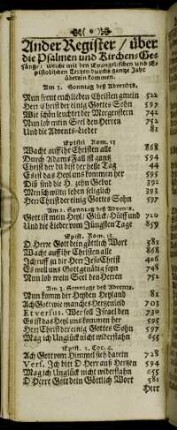 Ander Register / über
die Psalmen und Kirchen-Ge-
sänge / welche mit den Evangelischen und E-
pistolischen Texten durchs gantze Jahr
überein kommen.
Am 1. Sonntag des Advents.
Nun freut euch lieben Christen gmein 522
Herr Christ der einig Gottes Sohn 597
Wie schön leuchtet der Morgenstern 742
Nun lob mein Seel den Herren 752
Und die Advents-Lieder 81
Epistel. Rom. 13
Wacht auff ihr Christen alle 868
Durch Adams Fall ist gantz 594
Christ der du bist der helle Tag 44
Es ist das Heyl uns kommen her 595
Diß sind die H. zehn Gebot 391
Mensch wiltu leben seliglich 392
Herr Christ der einig Gottes Sohn 597
Am 2. Sonntag des Advents.
Gott ist mein Heyl / Glück / Hülff und 720
Und die Lieder vom Jüngsten Tage 859
Epistel. Rom. 15
O Herre Gott dein göttlich Wort 581
Wacht auff ihr Christen alle 868
Ich ruff zu dir Herr Jesu Christ 406
Es woll uns Gott genädig seyn 748
Nun lob mein Seel den Herren 752
Am 3. Sonntag des Advents.
Nun komm der Heyden Heyland 81
Ach Gott wie manches Hertzenleid 705
Et versus. Wer soll Israel den 730
Es ist das Heyl uns kommen her 595
Herr Christ der einig Gottes Sohn 597
Mag ich Unglück nicht widerstahn 655
Epist. 1. Cor. 4.
Ach Gott vom Himmel sieh darein 728
Vers. Ich bitt O Herr auß Hertzen 594
Mag ich Unglück nicht widerstahn 655
O Herre Gott dein Göttlich Wort 581
Herr